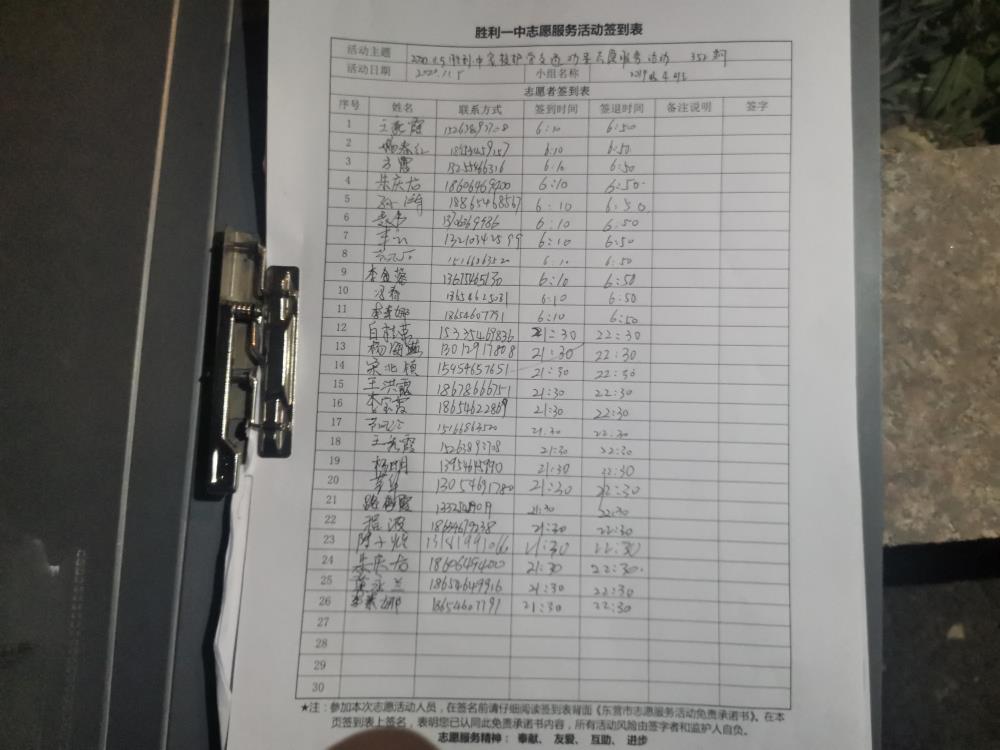 胜利一中志愿服务活动签到表
活动主题 2020.11.5胜利一中家校护学交通劝导志愿服务活动 352期
活动日期 2020.11.5 小组名称 2019级4班
志愿者签到表
序号 姓名 联系方式 签到时间 签退时间 备注说明 签字
1 6:10 6:50
2 6:10 6:50
3 方霞 13255466316 6:10 6:50
4 朱庆店 18606469400 6:10 6:50
5 18865468567 6:10 6:50
6 6:10 6:50
7 13210342599 6:10 6:50
8 15166863520 6:10 6:50
9 李金蓉 13675465130 6:10 6:50
10 冯春 13654625031 6:10 6:50
11 18654607791 6:10 6:50
12 白桂英 15335469836 21:30 22:30
13 13012917808 21:30 22:30
14 宋北镇 15454657651 21:30 22:30
15 王洪霞 18678666751 21:30 22:30
16 李宝霞 18654622869 21:30 22:30
17 15166863520 21:30 22:30
18 21:30 22:30
19 杨明 21:30 22:30
20 13054691780 21:30 22:30
21 21:30 22:30
22 程波 21:30 22:30
23 21:30 22:30
24 朱庆店 18606494400 21:30 22:30
25 董永兰 18654649916 21:30 22:30
26 18654607791 21:30 22:30
27
28
29
30
★注：参加本次志愿活动人员，在签名前请仔细阅读签到表背面《东营市志愿服务活动免责承诺书》。在本
页签到表上签名，表明您已认同此免责承诺书内容，所有活动风险由签字者和监护人自负。
志愿服务精神： 奉献、 友爱、 互助、 进步